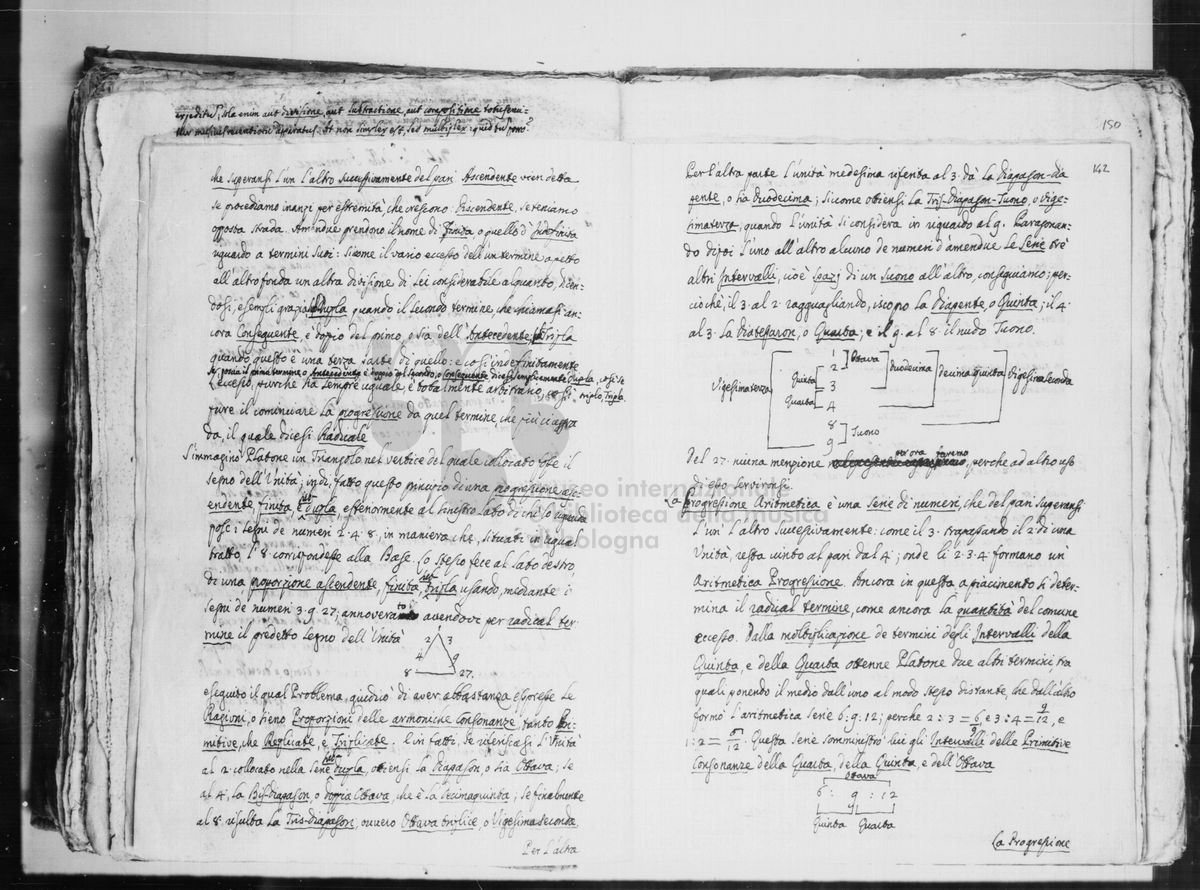 expeditus, sola enim aut divisione, aut subtractione, aut compositione totus
apparatus. At non simplex est, sed multiplex: quid tu porro?
che superansi l'un l'altro successivamente del pari. Ascendente vien detta,
se procediamo inanzi per estremità, che crescono: Discendente, se teniamo
opposta strada. Amendue prendono il nome di finita, o quello d'Indefinita
riguardo a termini suoi: Siccome il vario eccesso dell'un termine a petto
all'altro fonda un altra divisione di lei considerabile alquanto, dicen-
dosi, esempli grazia, subdupla quando il secondo termine, che chiamasi an-
cora Conseguente, è doppio del primo, o sia dell'Antecedente, subtripla
quando questo è una terza parte di quello: e così indefinitamente
Se poscia il primo termine, o Antecedente è doppio del secondo, o Conseguente dicesi semplicemente Dupla, così se
L'eccesso, purche sia sempre uguale, è totalmente arbitrario, triplo, Tripla.
pure il cominciare la progressione da quel termine che più ci aggra
da, il quale dicesi Radicale
S'immaginò Platone un Triangolo nel vertice del quale collocato ebbe il
segno dell'Unità; indi, fatto questo principio di una progressione as-
cendente, finita e subdupla esternamente al sinistro lato di ciò sup
pose i segni de numeri 2. 4. 8, in maniera che, situati in ugual
tratto l'8 corrispondesse alla Base. Lo stesso fece al lato destro,
di una proporzione ascendente, finita, subtripla usando, mediante i
segni de numeri 3. 9. 27; annoverato avendovi per radical ter-
mine il predetto segno dell'Unità
1
2 3
4 9
8 27.
eseguito il qual Problema, giudicò di aver abbastanza espresse le
Ragioni, o sieno Proporzioni delle armoniche Consonanze, tanto Pri-
mitive, che Replicate, e Triplicate. E in fatto, se riferiscasi l'Unità
al 2. collocato nella serie subdupla, ottiensi la Diapason, o sia Ottava; se
al 4, la Bis-diapason, o doppia Ottava, che è la Decimaquinta; se finalmente
al 8. risulta la Tris-diapason, ovvero Ottava triplice, o Vigesimaseconda.
Per l'altra
150
142
Per l'altra parte l'unità medesima riferita al 3. dà la Diapason-dia
pente, o sia Duodecima; siccome ottiensi la Tris-Diapason-Tuono, o Vige-
simaterza, quando l'unità si considera in riguardo al 9. Paragonan-
do dipoi l'uno all'altro alcuno de numeri d'amendue le Serie tre
altri Intervalli, cioè spazj di un suono all'altro, conseguiamo; per-
ciòchè, il 3. al 2. ragguagliando, iscopro la Diapente, o Quinta; il 4.
al 3. la Diatessaron, o Quarta; e il 9. al 8. il nudo Tuono.
Vigesimaterza Quinta Quarta 1 2 3 4 8 9 Ottava Duodecima Decimaquinta Vigesimaseconda Tuono
Del 27. niuna menzione per ora faremo, perche ad altro uso
di esso servironsi.
La Progressione Aritmetica è una serie di numeri, che del pari superansi
l'un l'altro successivamente: come il 3. trapassando il 2. di una
Unità, resta vinto al pari dal 4; onde li 2. 3. 4. formano un'
Aritmetica Progressione. Ancora in questa a piacimento si deter-
mina il radical termine, come ancora la quantità del comune
eccesso. Dalla moltiplicazione de termini degli Intervalli della
Quinta, e della Quarta ottenne Platone due altri termini, tra
quali ponendo il medio dall'uno al modo stesso distante, che dall'altro
formò l'aritmetica serie 6. 9. 12; perche 2 : 3 = 6/9, e 3 : 4 = 9/12, e
1 : 2 = 6/12. Questa serie somministrò lui gli Intervalli delle Primitive
Consonanze della Quarta, della Quinta, e dell'Ottava
Ottava
6 : 9 : 12
Quinta Quarta
La Progressione
museo internazionale
e biblioteca della musica
di Bologna